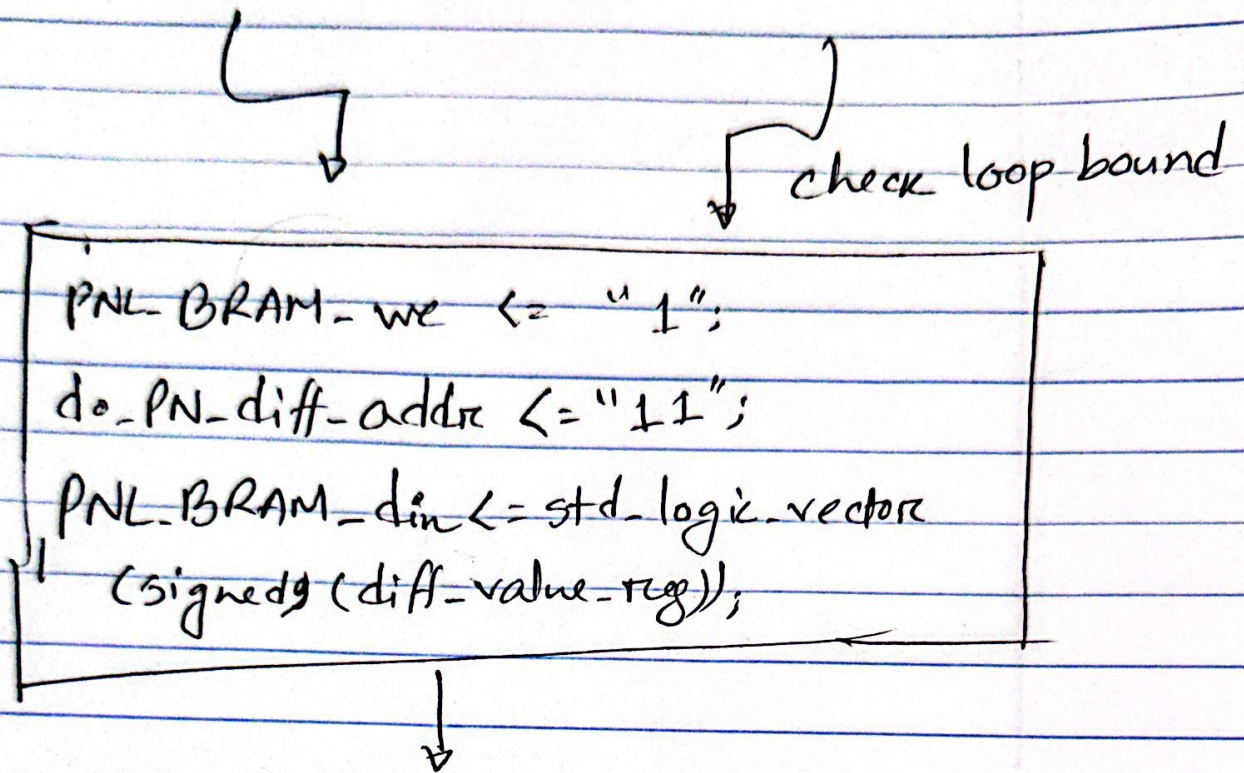 check loop bound
PNL_BRAM_we <= "1";
do_PN_diff_addr <= "11";
PNL_BRAM_din <= std_logic_vector
(signed (diff_value_reg));